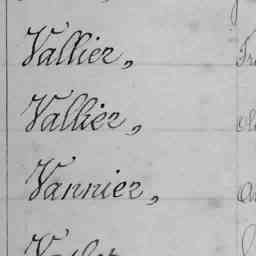 Vallier,
Vallier,
Vannier,